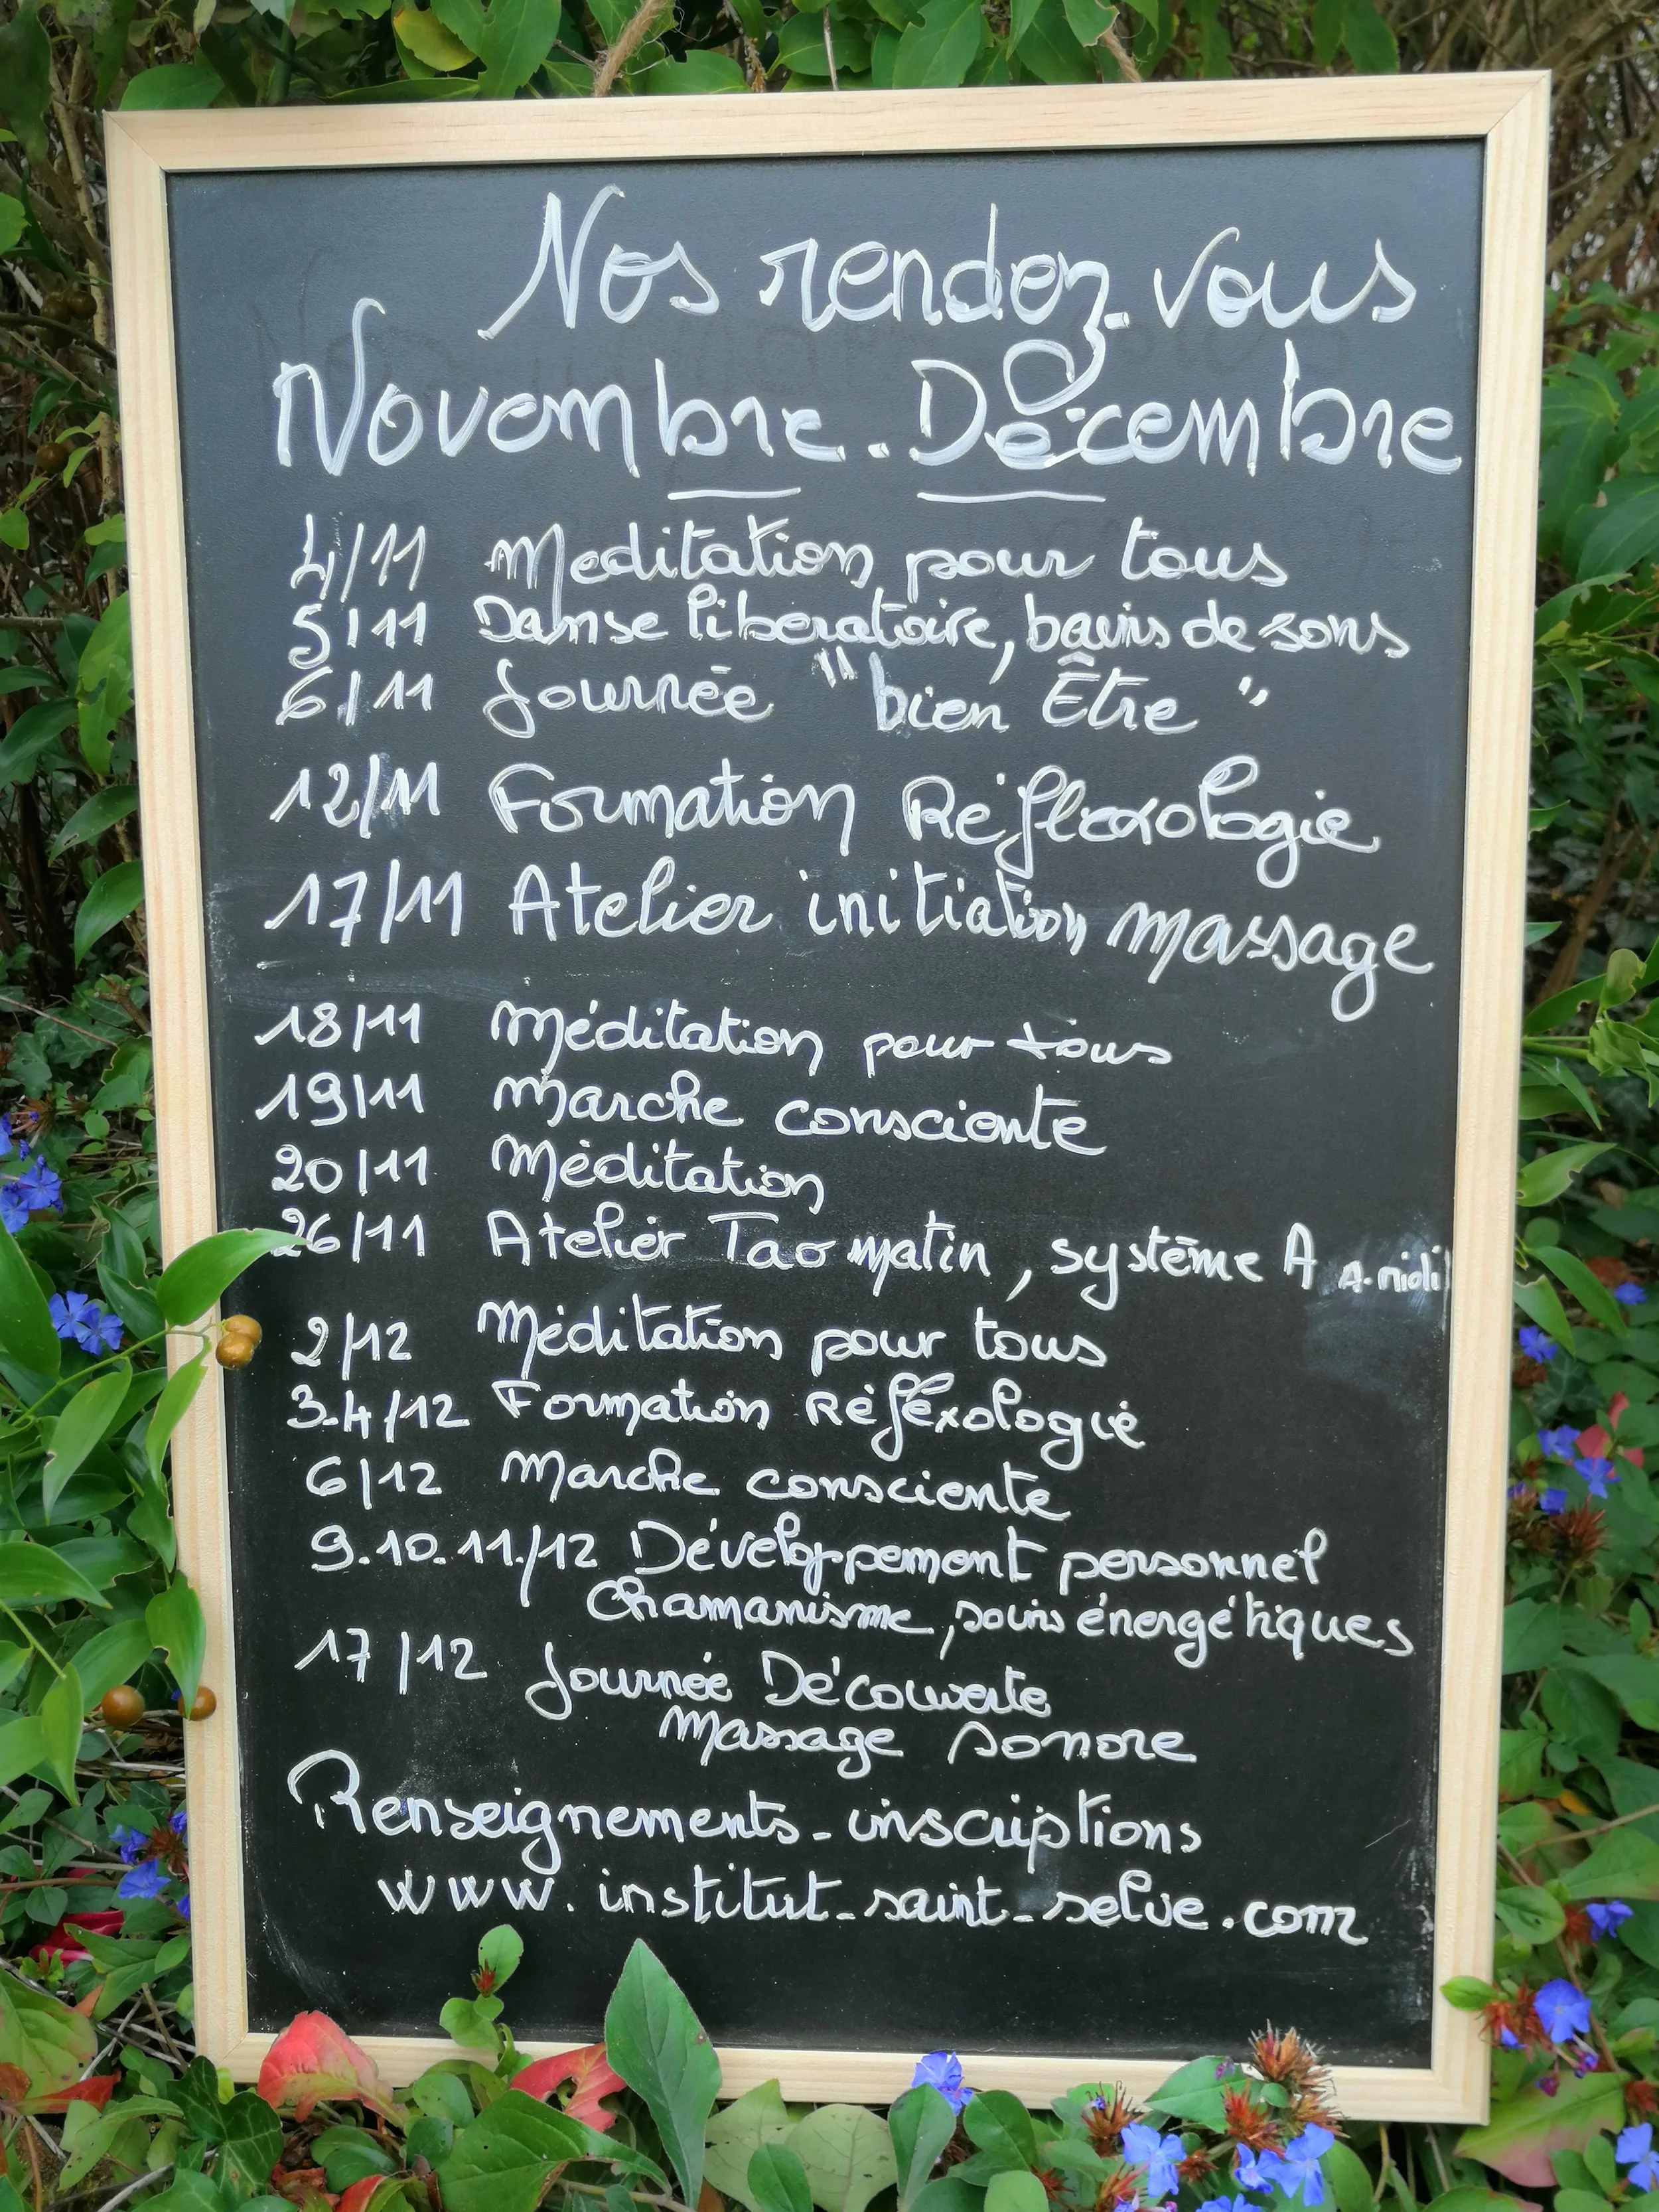 Nos rendez-vous
Novembre - Décembre
4/11 Meditation pour tous
5/11 Danse liberatoire, bains de sons
6/11 Journée "bien Être"
12/11 Formation Réflexologie
17/11 Atelier initiation massage
18/11 Méditation pour tous
19/11 Marche consciente
20/11 Méditation
26/11 Atelier Tao matin, système A A-midi
2/12 Méditation pour tous
3-4/12 Formation Réfléxologie
6/12 Marche consciente
9.10.11/12 Développement personnel
Chamanisme, soins énergétiques
17/12 Journée Découverte
Massage Sonore
Renseignements - inscriptions
www.institut-saint-selve.com